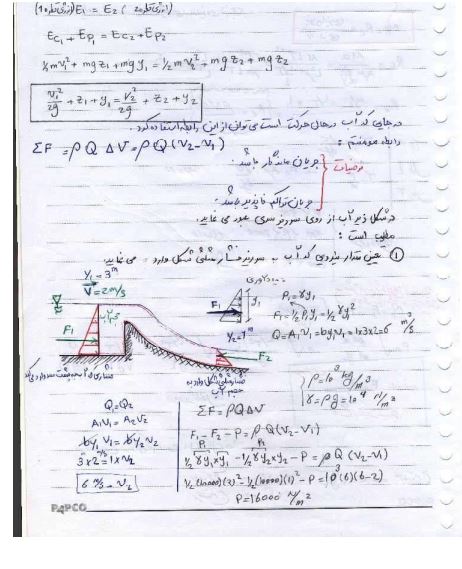 E₁ = E₂
Ec₁ + Ep₁ = Ec₂ + Ep₂
½mv₁² + mgz₁ + mgy₁ = ½mv₂² + mgz₂ + mgz₂
v₁²/2g + z₁ + y₁ = v₂²/2g + z₂ + y₂
در جایی که آب در حال حرکت است می توان از این رابطه استفاده کرد.
رابطه مومنتم :
ΣF = ρQΔV = ρQ(v₂-v₁)
فرضیات
جریان ماندگار باشد.
جریان تراکم ناپذیر باشد.
در شکل زیر آب از روی سرریز سدی عبور می نماید.
مطلوب است :
① تعیین مقدار نیرویی که آب به سرریز وارد می نماید.
y₁ = 3ᵐ
V = 2 m/s
F₁
F₂
y₂ = 1ᵐ
F₁
y₁
P₁ = γy₁
F₁ = ½P₁y₁ = ½γy²
Q = A₁v₁ = by₁v₁ = 1x3x2 = 6 m³/s
ρ = 10³ kg/m³
γ = ρg = 10⁴ N/m³
Q₁ = Q₂
A₁V₁ = A₂V₂
by₁v₁ = by₂v₂
3x2 = 1xv₂
6 m/s = v₂
ΣF = ρQΔV
F₁ - F₂ - P = ρQ(v₂-v₁)
½γy₁xy₁ - ½γy₂xy₂ - P = ρQ(v₂-v₁)
½(10000)(3)² - ½(10000)(1)² - P = 10³(6)(6-2)
P = 16000 N/m²
PAPCO